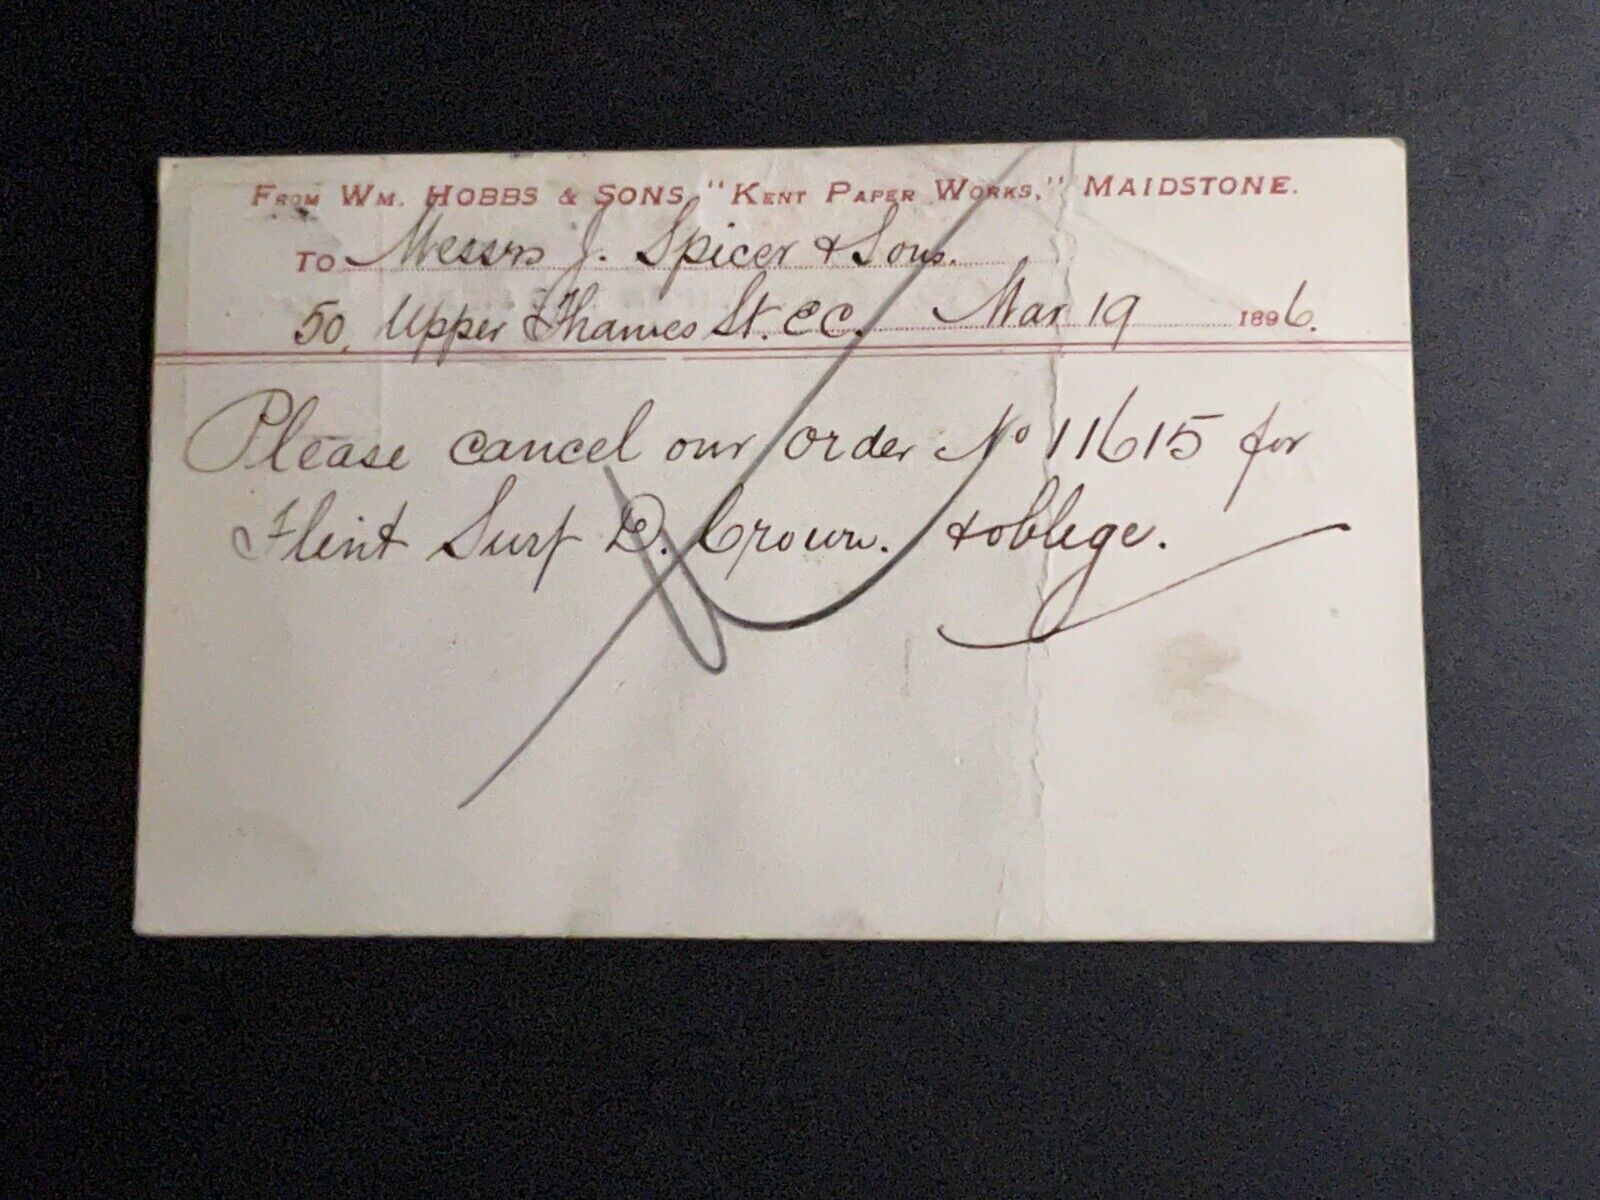 FROM WM. HOBBS & SONS, "KENT PAPER WORKS," MAIDSTONE.
TO Messrs J. Spicer & Sons.
50, Upper Thames St. E.C. Mar 19 1896.
Please cancel our order No 11615 for
Flint Surf D. Crown. & oblige.